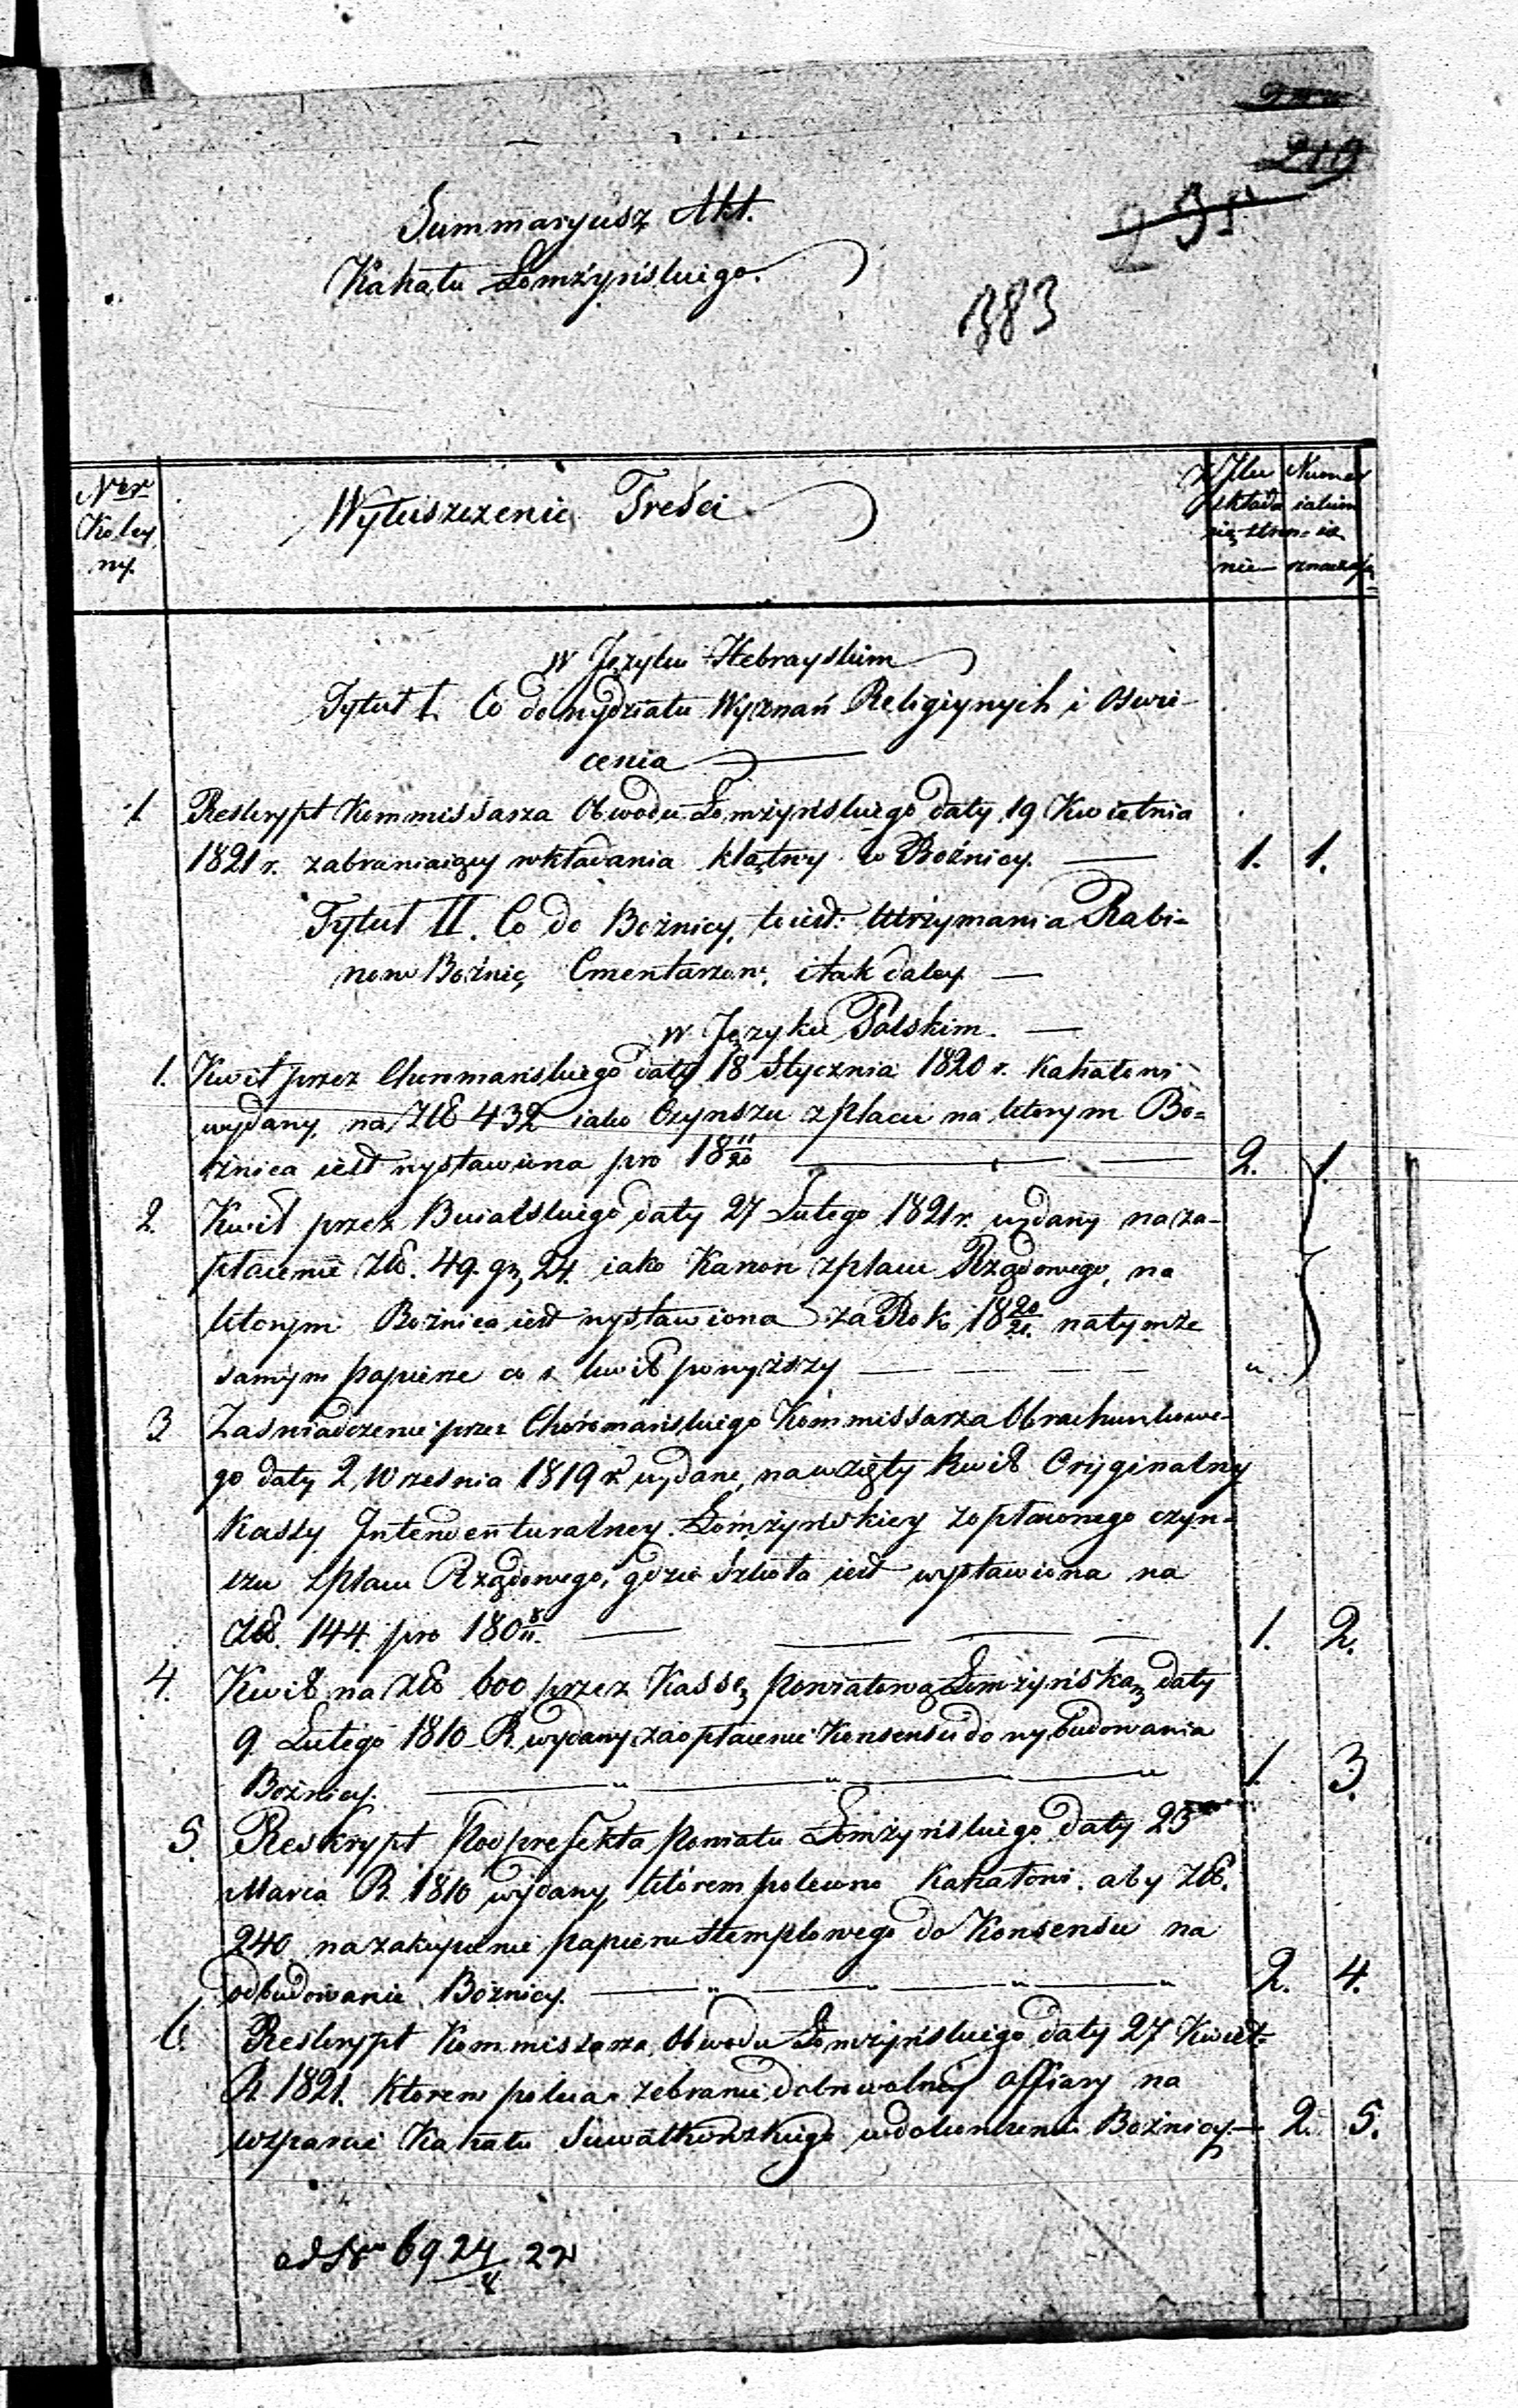 219
295
Summaryusz Akt.
Kahału Łomżyńskiego.
1383
Ner Koley ny.
Wyłuszczenie Treści
Z Ilu składa się stron-nie
Numer iakim iest oznaczony
w Języku Hebrayskim
Tytuł I. Co do wydziału Wyznań Religiynych i Oswie-
cenia
1. Reskrypt Kommissarza Obwodu Łomżyńskiego daty 19 Kwietnia
1821 r. zabraniaiący wkładania klątwy w Bożnicy. 1. 1.
Tytuł II. Co do Bożnicy, to iest: Utrzymania Rabi-
now Bożnic, Cmentarzow, i tak daley.
w Języku Polskim.
1. Kwit przez Churmańskiego daty 18 Stycznia 1820 r. Kahałowi
wydany, na Złł 432 iako Czynszu z placu na którym Bo-
żnica iest wystawiona pro 18 11/20 2. 1.
2. Kwit przez Bialskiego daty 27 Lutego 1821 r. wydany na za-
płacenie Złł. 49. gr. 24. iako Kanon z placu Rządowego, na
ktorym Bożnica iest wystawiona za Rok 18 20/21. na tymże
samym papierze co i kwit powyższy „
3. Zaswiadczenie przez Choromańskiego Kommissarza Obrachunkowe-
go daty 2 Wrzesnia 1819 r. wydane, na wzięty kwit Oryginalny
Kassy Intendenturalney Łomżyńskiey z opłaconego czyn-
szu z placu Rządowego, gdzie Szkoła iest wystawiona na
Złł. 144. pro 180 8/11. 1. 2.
4. Kwit na Złł 600 przez Kassę powiatową Łomżyńską daty
9 Lutego 1810 R. wydany za opłacenie Konsensu do wybudowania
Bożnicy. 1. 3.
5. Reskrypt Podprefekta powiatu Łomżyńskiego daty 23
Marca R. 1810 wydany, którem polecono Kahałowi, aby Złł.
240 na zakupienie papieru stemplowego do Konsensu na
odbudowanie Bożnicy. 2. 4.
6. Reskrypt Kommissarza Obwodu Łomżyńskiego daty 27 Kwiet-
R. 1821. Którem poleca zebranie dobrowolney offiary na
wsparcie Kahału Suwałkowskiego w dokończeniu Bożnicy. 2. 5.
69 24/8 22